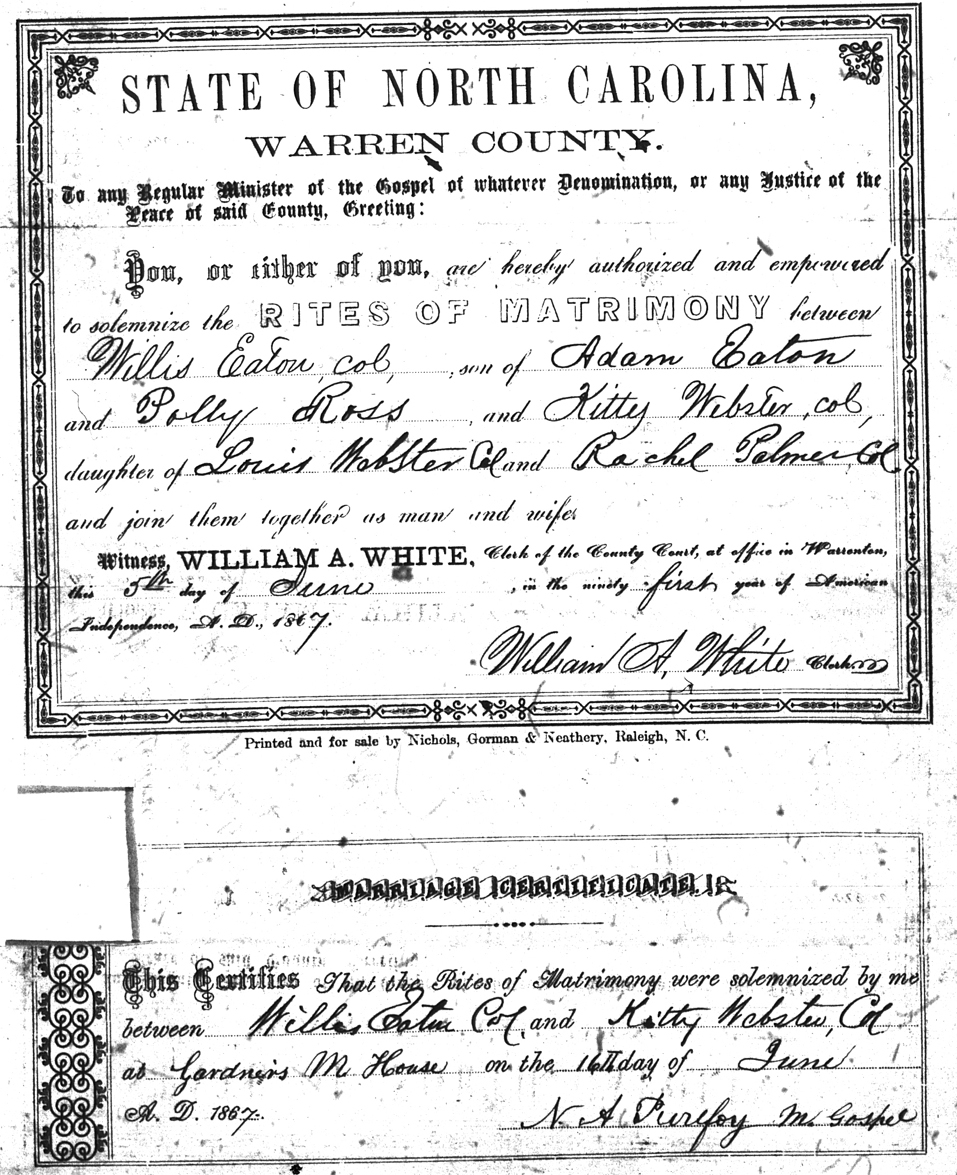 STATE OF NORTH CAROLINA,
WARREN COUNTY.
To any Regular Minister of the Gospel of whatever Denomination, or any Justice of the
Peace of said County, Greeting:
You, or either of you, are hereby authorized and empowered
to solemnize the RITES OF MATRIMONY between
Willis Eaton, col, , son of Adam Eaton
and Polly Ross , and Kitty Webster, col,
daughter of Louis Webster Col and Rachel Palmer, Col
and join them together as man and wife.
Witness, WILLIAM A. WHITE, Clerk of the County Court, at office in Warrenton,
this 5th day of June , in the ninety first year of American
Independence, A. D., 1867.
William A. White Clerk
Printed and for sale by Nichols, Gorman & Neathery, Raleigh, N. C.
MARRIAGE CERTIFICATE.
This Certifies That the Rites of Matrimony were solemnized by me
between Willis Eaton Col, and Kitty Webster, Col
at Gardners M House on the 16th day of June
A. D. 1867.
N A Purefoy M. Gospel